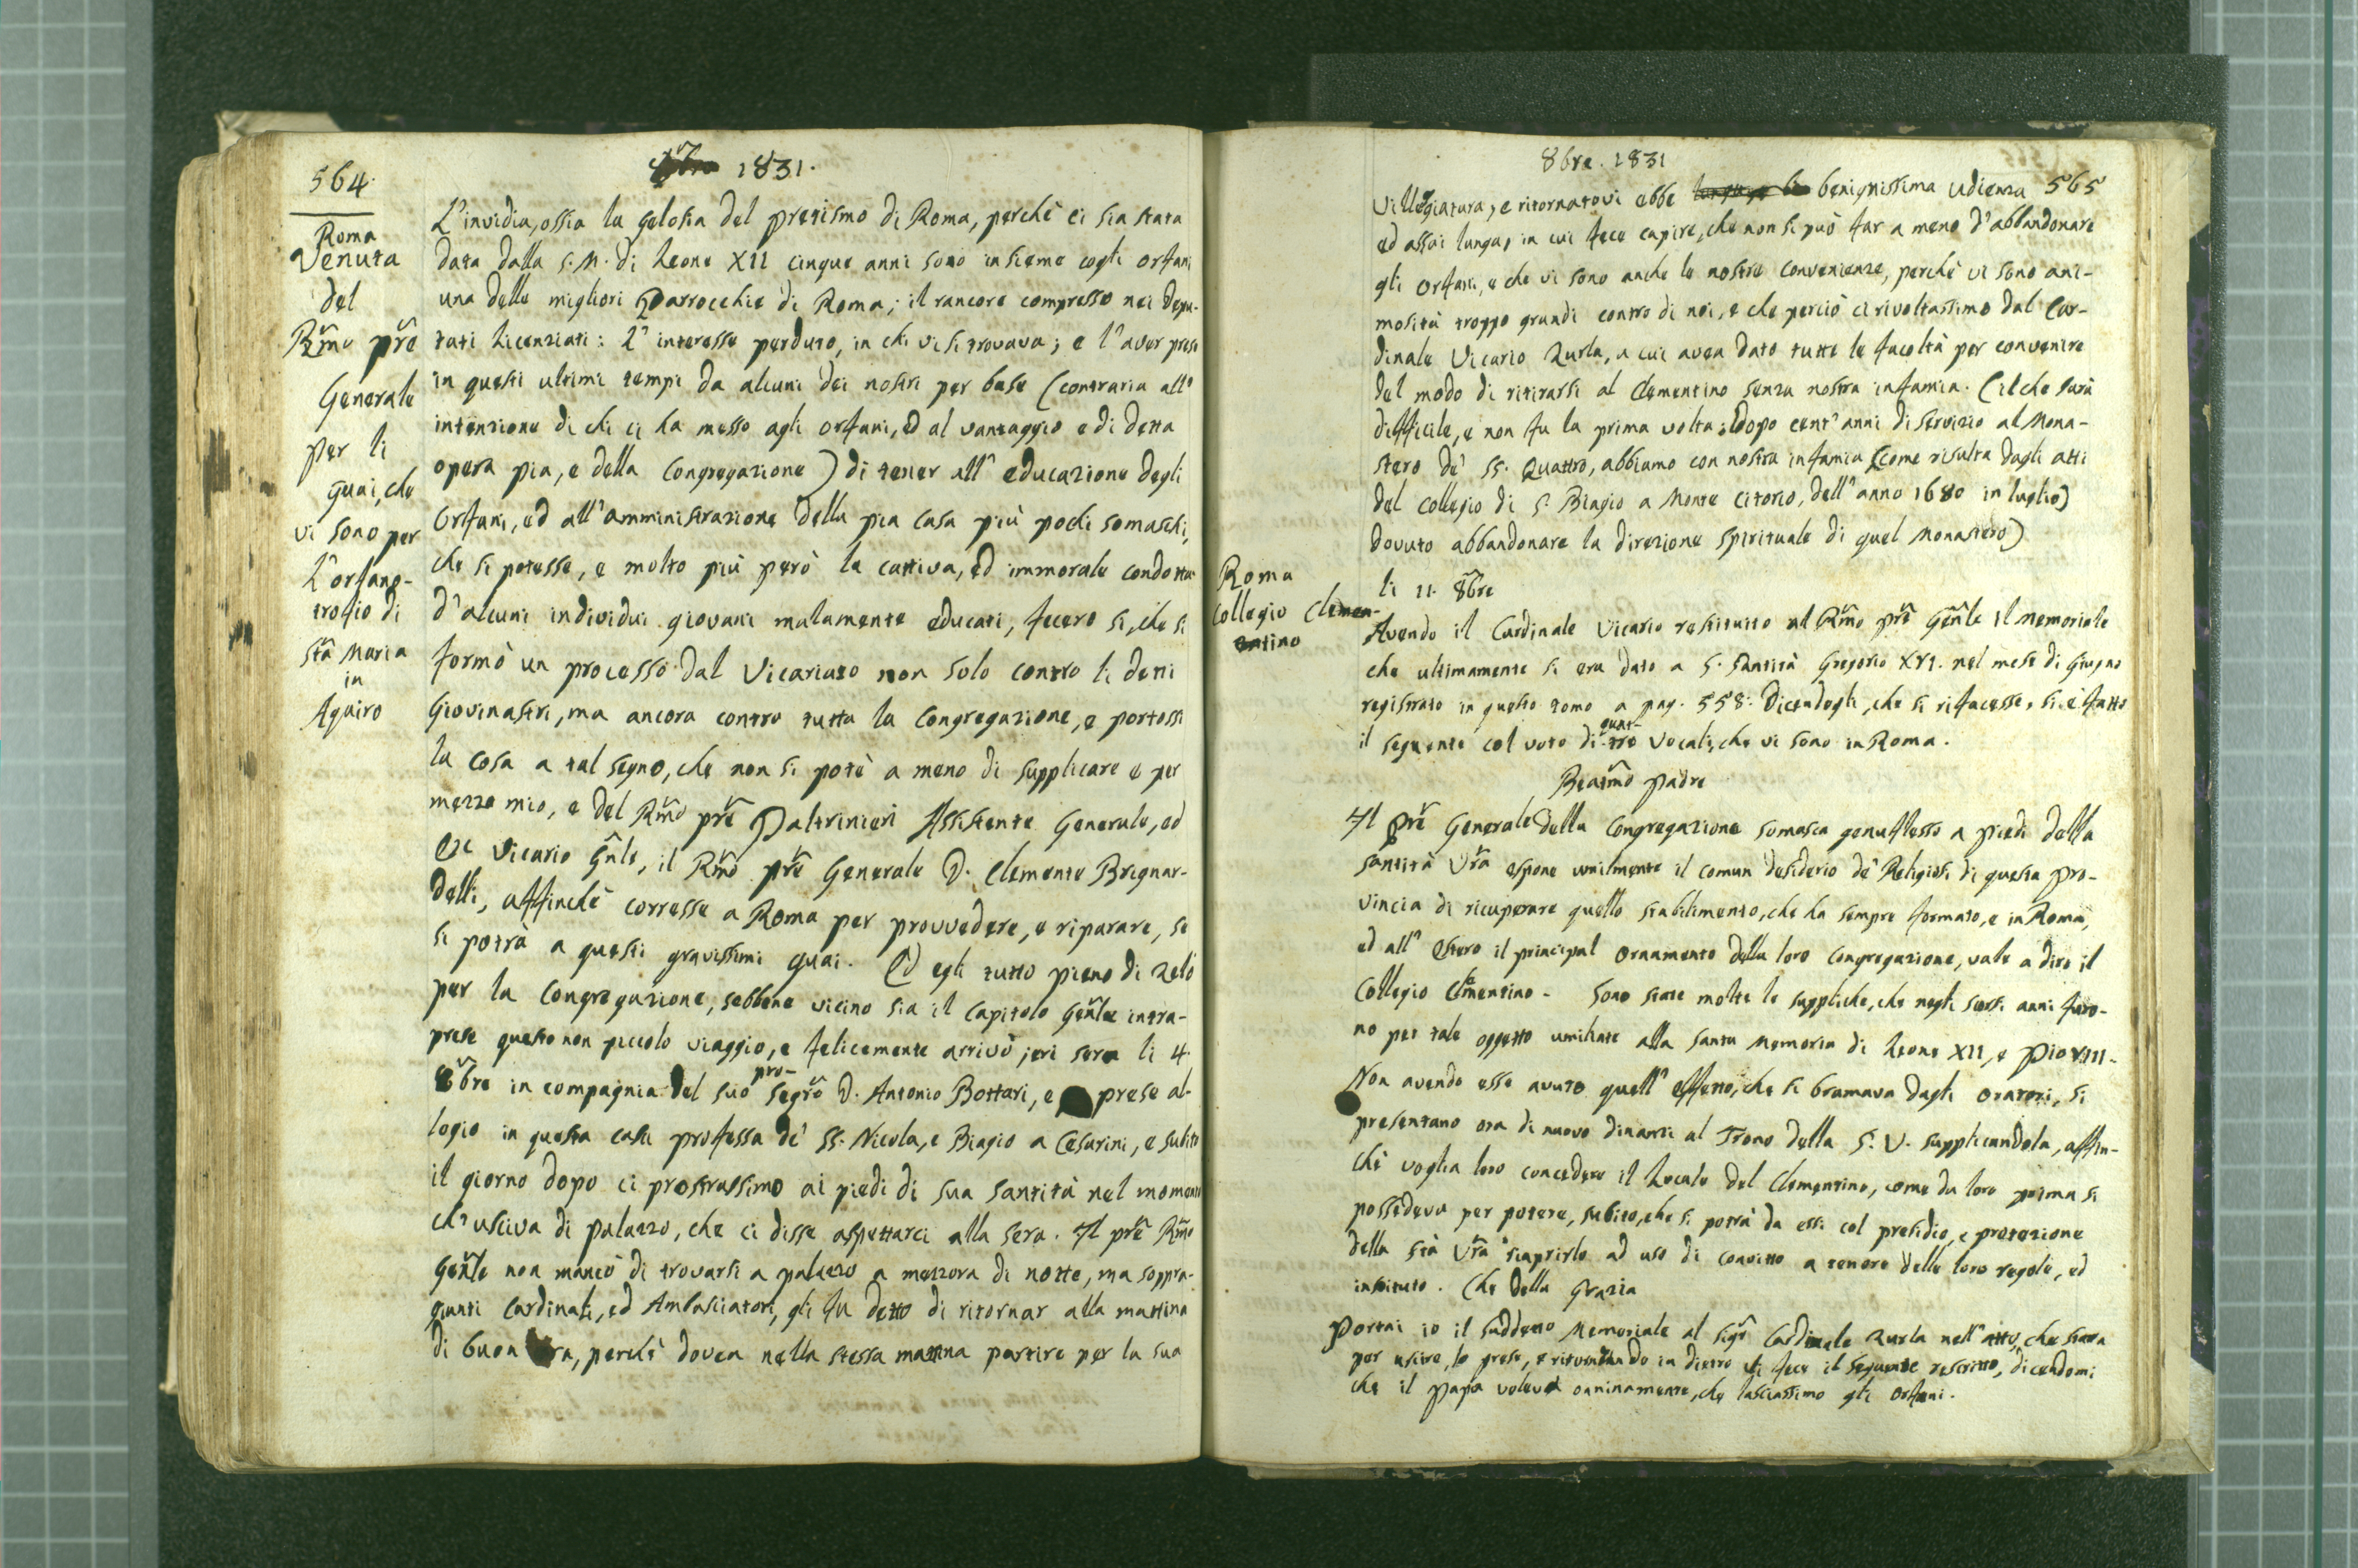 564.
8bre 1831.
Roma
Venuta
del
Rmo pre
Generale
per li
guai, che
vi sono per
L'orfano-
trofio di
Sta Maria
in
Aquiro
L'invidia, ossia la gelosia del pretismo di Roma, perchè ci sia stata
data dalla S. M. di Leone XII cinque anni sono insieme cogli orfani
una delle migliori Parrocchie di Roma; il rancore compresso nei depu-
tati licenziati: L'interesse perduto, in chi vi si trovava; e l'aver preso
in questi ultimi tempi da alcuni dei nostri per base (contraria all'
intenzione di chi ci ha messo agli orfani, ed al vantaggio e di detta
opera pia, e della Congregazione) di tener all'educazione degli
Orfani, ed all'amministrazione della pia casa più pochi somaschi,
che si potesse, e molto più però la cattiva, ed immorale condotta
d'alcuni individui giovani malamente educati, fecero si, che si
formò un processo dal Vicariato non solo contro li detti
Giovinastri, ma ancora contro tutta la Congregazione, e portossi
la cosa a tal segno, che non si potè a meno di supplicare e per
mezzo mio, e del Rmo pre Paltrinieri Assistente Generale, ed
Ex Vicario Gnle, il Rmo pre Generale D. Clemente Brignar-
delli, affinchè corresse a Roma per provvedere, e riparare, se
si potrà a questi gravissimi guai. Ed egli tutto pieno di zelo
per la Congregazione, sebbene vicino sia il Capitolo Genle intra-
prese questo non piccolo viaggio, e felicemente arrivò jeri sera li 4
8bre in compagnia del suo pro-Segro D. Antonio Bottari, e prese al-
logio in questa casa professa de' SS. Nicola, e Biagio a Cesarini, e subito
il giorno dopo ci prostrassimo ai piedi di sua Santità nel momento
ch'usciva di palazzo, che ci disse aspettarci alla sera. Il pre Rmo
Genle non mancò di trovarsi a palazzo a mezzora di notte, ma soppra-
giunti Cardinali, ed Ambasciatori, gli fu detto di ritornar alla mattina
di buon ora, perchè dovea nella stessa mattina partire per la sua
8bre. 1831
565
Villeggiatura, e ritornatovi ebbe benignissima udienza
ed assai lunga, in cui fece capire, che non si può far a meno d'abbandonare
gli orfani, e che vi sono anche le nostre convenienze, perchè vi sono ani-
mosità troppo grandi contro di noi, e che perciò ci rivoltassimo dal Car-
dinale Vicario Zurla, a cui avea dato tutte le facoltà per convenire
del modo di ritirarsi al Clementino senza nostra infamia. (il che sarà
difficile, e non fu la prima volta: dopo cent'anni di servizio al Mona-
stero de' SS. Quattro, abbiamo con nostra infamia (come risulta dagli atti
del Collegio di S. Biagio a Monte Citorio, dell'anno 1680 in luglio)
dovuto abbandonare la direzione spirituale di quel Monastero)
Roma
Collegio Clemen-
tino
li 11. 8bre
Avendo il Cardinale Vicario restituito al Rmo pre Genle il memoriale
che ultimamente si era dato a S. Santità Gregorio XVI. nel mese di Giugno
registrato in questo tomo a pag. 558. dicendogli, che si rifacesse, si è fatto
il seguente col voto di quat-tro Vocali, che vi sono in Roma.
Beatmo Padre
Il pre Generale della Congregazione Somasca genuflesso a piedi della
Santità Vra espone umilmente il comun desiderio de' Religiosi di questa pro-
vincia di ricuperare quello stabilimento, che ha sempre formato, e in Roma,
ed all' Estero il principal ornamento della loro Congregazione, vale a dire il
Collegio Clementino - Sono state molte le suppliche, che negli scorsi anni furo-
no per tale oggetto umiliate alla Santa Memoria di Leone XII, e Pio VIII-
Non avendo esse avuto quell' effetto, che si bramava dagli oratori, si
presentano ora di nuovo dinanzi al Trono della S. V. supplicandola, affin-
chè voglia loro concedere il Locale del Clementino, come da loro prima si
possedeva per potere, subito, che si potrà da essi col presidio, e protezione
della Stà Vra riaprirlo ad uso di convitto a tenore delle loro regole, ed
instituto. Che della Grazia
Portai io il suddetto Memoriale al Sigr Cardinale Zurla nell'atto, che stava
per uscire, lo prese, e ritornando in dietro vi fece il seguente rescritto, dicendomi
che il Papa voleva onninamente, che lasciassimo gli orfani.